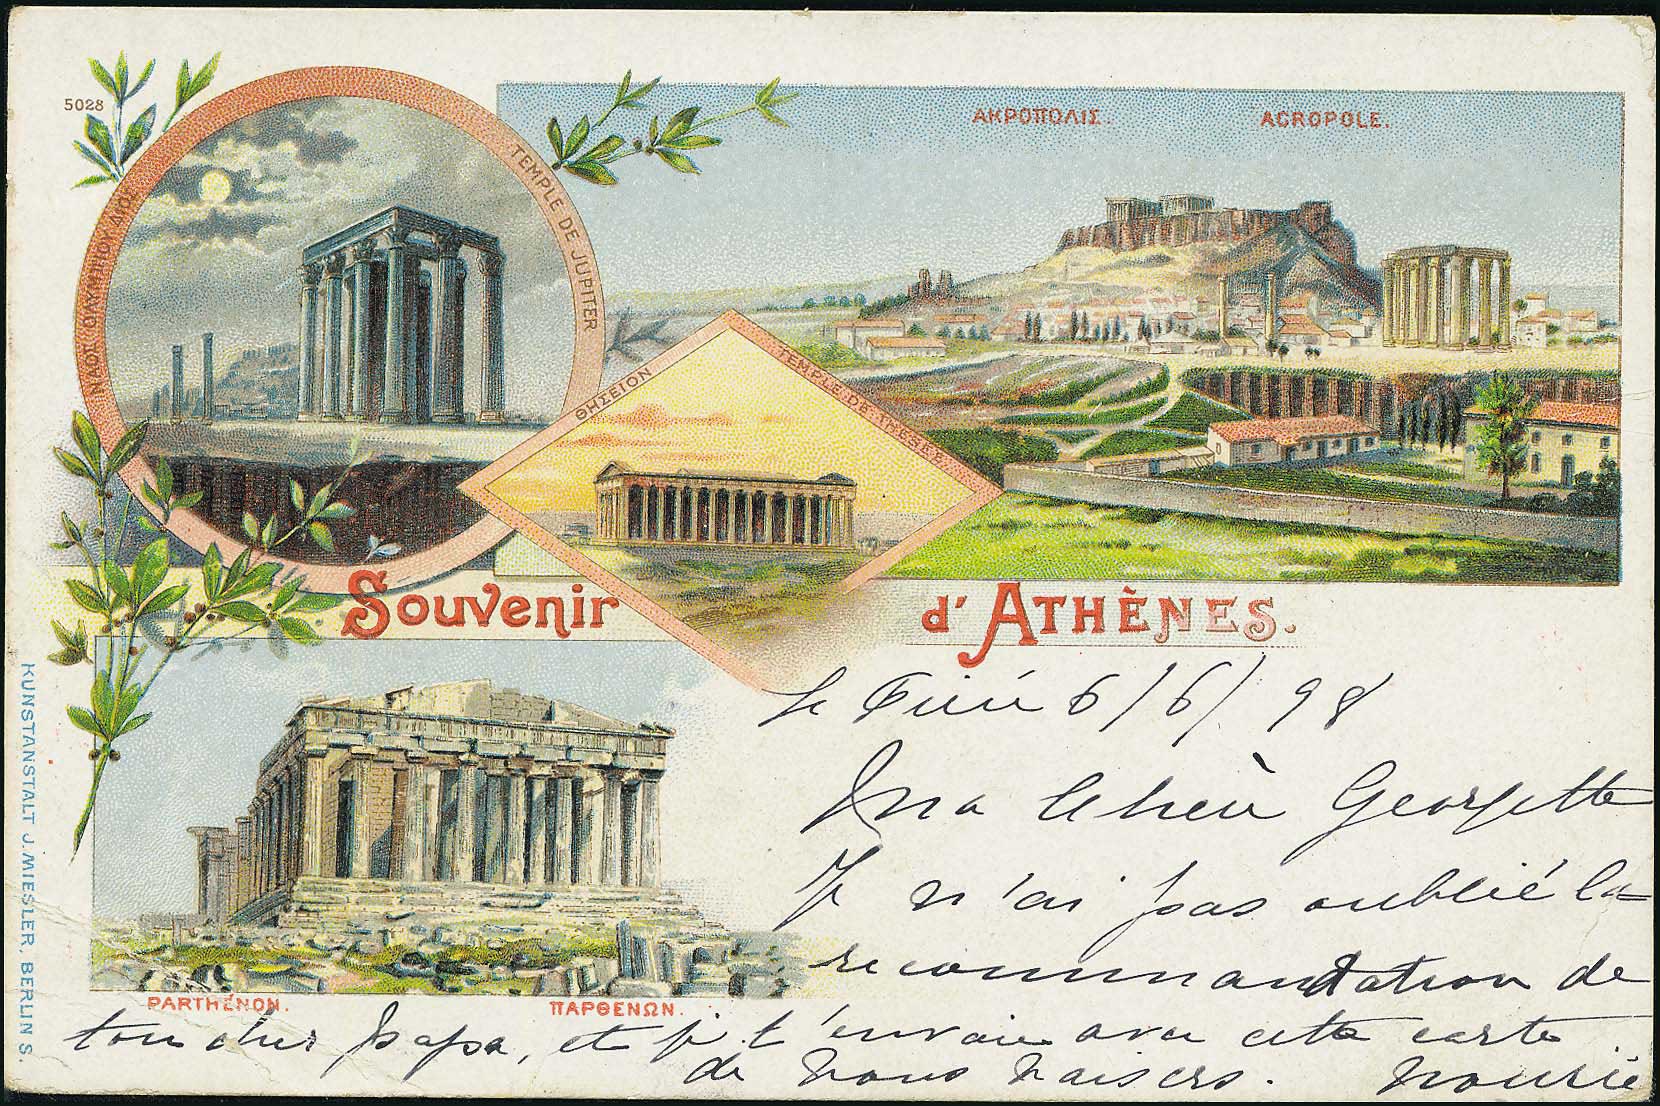 5028
ΝΑΟΣ ΟΛΥΜΠΙΟΥ ΔΙΟΣ
TEMPLE DE JUPITER
ΑΚΡΟΠΟΛΙΣ. ACROPOLE.
ΘΗΣΕΙΟΝ
TEMPLE DE THESÉE
Souvenir d'ATHÈNES.
KUNSTANSTALT J. MIESLER, BERLIN S.
PARTHÉNON. ΠΑΡΘΕΝΩΝ.
Le 6/6/98
Ma Georgette
Je n'ai pas oublié la
recommandation de
ton cher papa, et je t'envoie avec cette carte
de bons baisers.